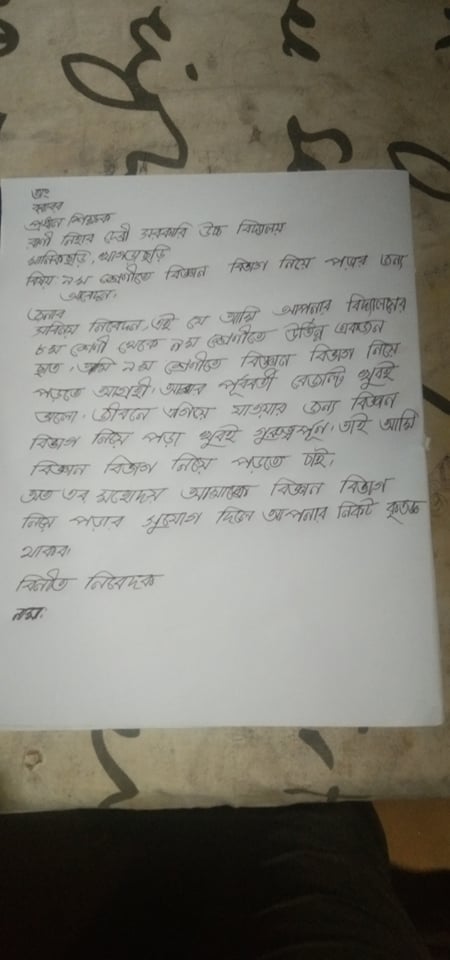 তাং
বরাবর
প্রধান শিক্ষক
রাণী নিহার দেবী সরকারি উচ্চ বিদ্যালয়
মানিকছড়ি, খাগড়াছড়ি
বিষয় ৯ম শ্রেণীতে বিজ্ঞান বিভাগ নিয়ে পড়ার জন্য
আবেদন।
জনাব
সবিনয় নিবেদন এই যে আমি আপনার বিদ্যালয়ের
৮ম শ্রেণী থেকে ৯ম শ্রেণীতে উত্তীর্ন একজন
ছাত্র। আমি ৯ম শ্রেণীতে বিজ্ঞান বিভাগ নিয়ে
পড়তে আগ্রহী। আমার পূর্ববর্তী রেজাল্ট খুবই
ভালো। জীবনে এগিয়ে যাওয়ার জন্য বিজ্ঞান
বিভাগ নিয়ে পড়া খুবই গুরুত্বপূর্ন। তাই আমি
বিজ্ঞান বিভাগ নিয়ে পড়তে চাই।
অত এব মহোদয় আমাকে বিজ্ঞান বিভাগ
নিয়ে পড়ার সুযোগ দিলে আপনার নিকট কৃতজ্ঞ
থাকব।
বিনীত নিবেদক
নাম: